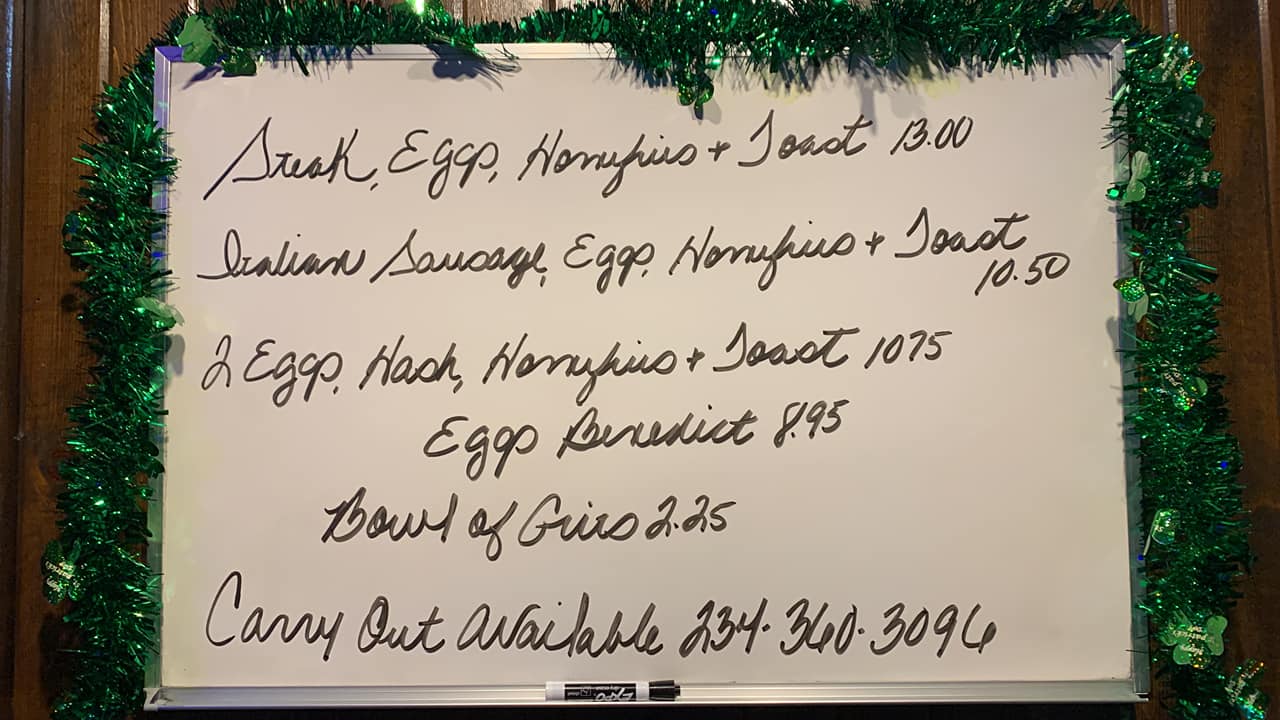 Steak, Eggs, Homefries + Toast 13.00
Italian Sausage, Eggs, Homefries + Toast
10.50
2 Eggs, Hash, Homefries + Toast 1075
Eggs Benedict 8.95
Bowl of Grits 2.25
Carry Out Available 234.360.3096
EXPO